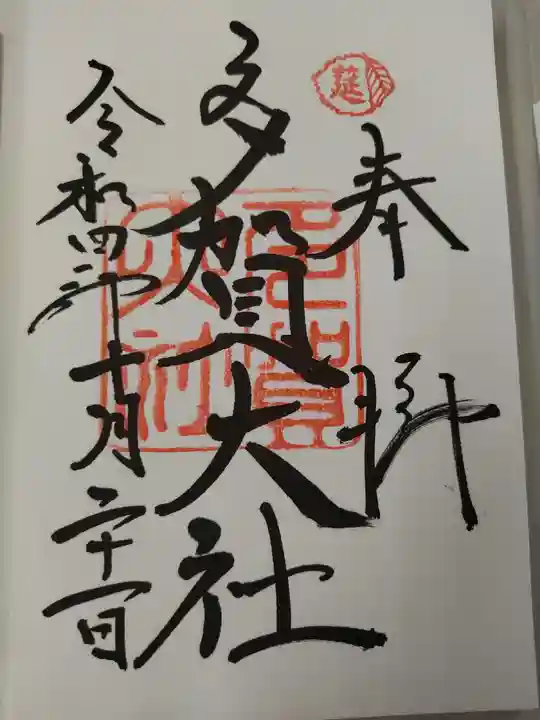 莚
奉拝
多賀大社
多賀大社
令和四年十月二十一日